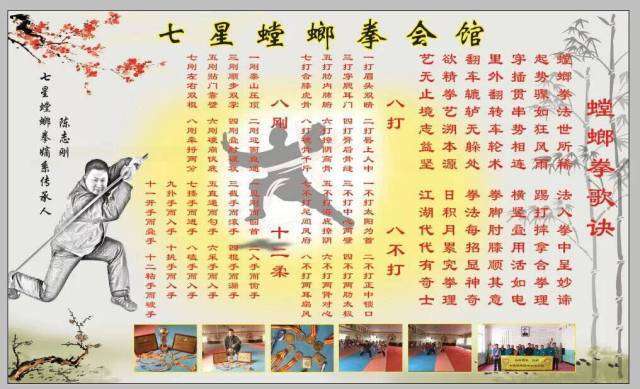 七星螳螂拳会馆
螳螂拳歌诀
螳螂拳法世所稀 法入拳中呈妙谛
起势骤如狂风雨 踢打摔拿合拳理
穿插贯串势相连 横竖并用活如电
里外翻转车轮术 拳脚肘膝顺其意
翻车辘轳无躲处 拳法每招显神奇
欲精拳艺溯本源 日积月累究拳理
艺无止境志益坚 江湖代代有奇士
八打
一打眉头双睛 二打唇上人中
三打穿腮耳门 四打背后骨缝
五打肋内肺腑 六打撩阴高骨
七打合膝虎骨 八打破骨千斤
八不打
一不打太阳为首 二不打正中锁口
三不打中心两壁 四不打两肋太极
五不打海底撩阴 六不打两肾对心
七不打尾闾风府 八不打两耳扇风
八刚
一刚泰山压顶 二刚迎面直通
三刚顺步双掌 四刚叠肘硬攻
五刚贴门靠壁 六刚硬崩伏底
七刚左右双棍 八刚摔捋两分
十二柔
一见刚而回首 二入手而偷手
三截手而滚手 四棍手而漏手
五直通而勾手 六采手而入手
七搂手而进手 八磕手而入手
九扑手而入手 十挑手而入手
十一开手而叠手 十二粘手而破手
陈志刚
七星螳螂拳嫡系传承人